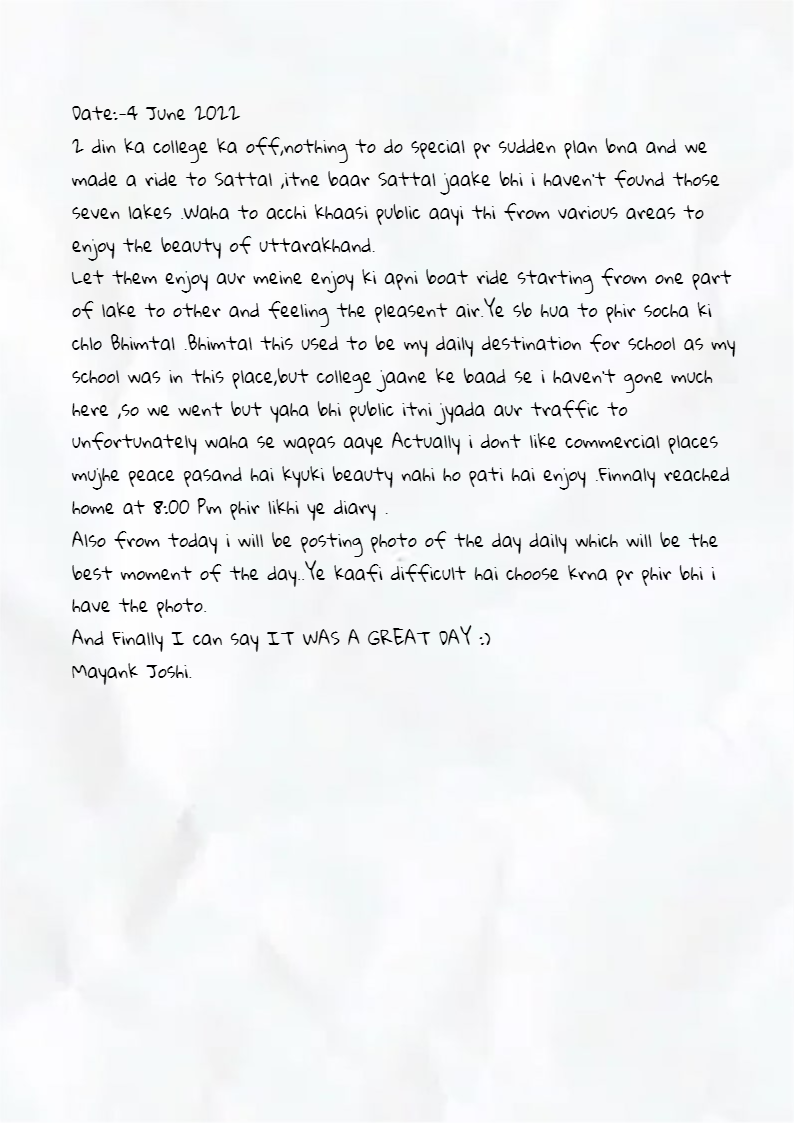 Date:-4 June 2022
2 din ka college ka off,nothing to do special pr sudden plan bna and we
made a ride to Sattal ,itne baar Sattal jaake bhi i haven't found those
seven lakes .Waha to acchi khaasi public aayi thi from various areas to
enjoy the beauty of uttarakhand.
Let them enjoy aur meine enjoy ki apni boat ride starting from one part
of lake to other and feeling the pleasent air.Ye sb hua to phir socha ki
chlo Bhimtal .Bhimtal this used to be my daily destination for school as my
school was in this place,but college jaane ke baad se i haven't gone much
here ,so we went but yaha bhi public itni jyada aur traffic to
unfortunately waha se wapas aaye Actually i dont like commercial places
mujhe peace pasand hai kyuki beauty nahi ho pati hai enjoy .Finnaly reached
home at 8:00 Pm phir likhi ye diary .
Also from today i will be posting photo of the day daily which will be the
best moment of the day..Ye kaafi difficult hai choose krna pr phir bhi i
have the photo.
And Finally I can say IT WAS A GREAT DAY :)
Mayank Joshi.